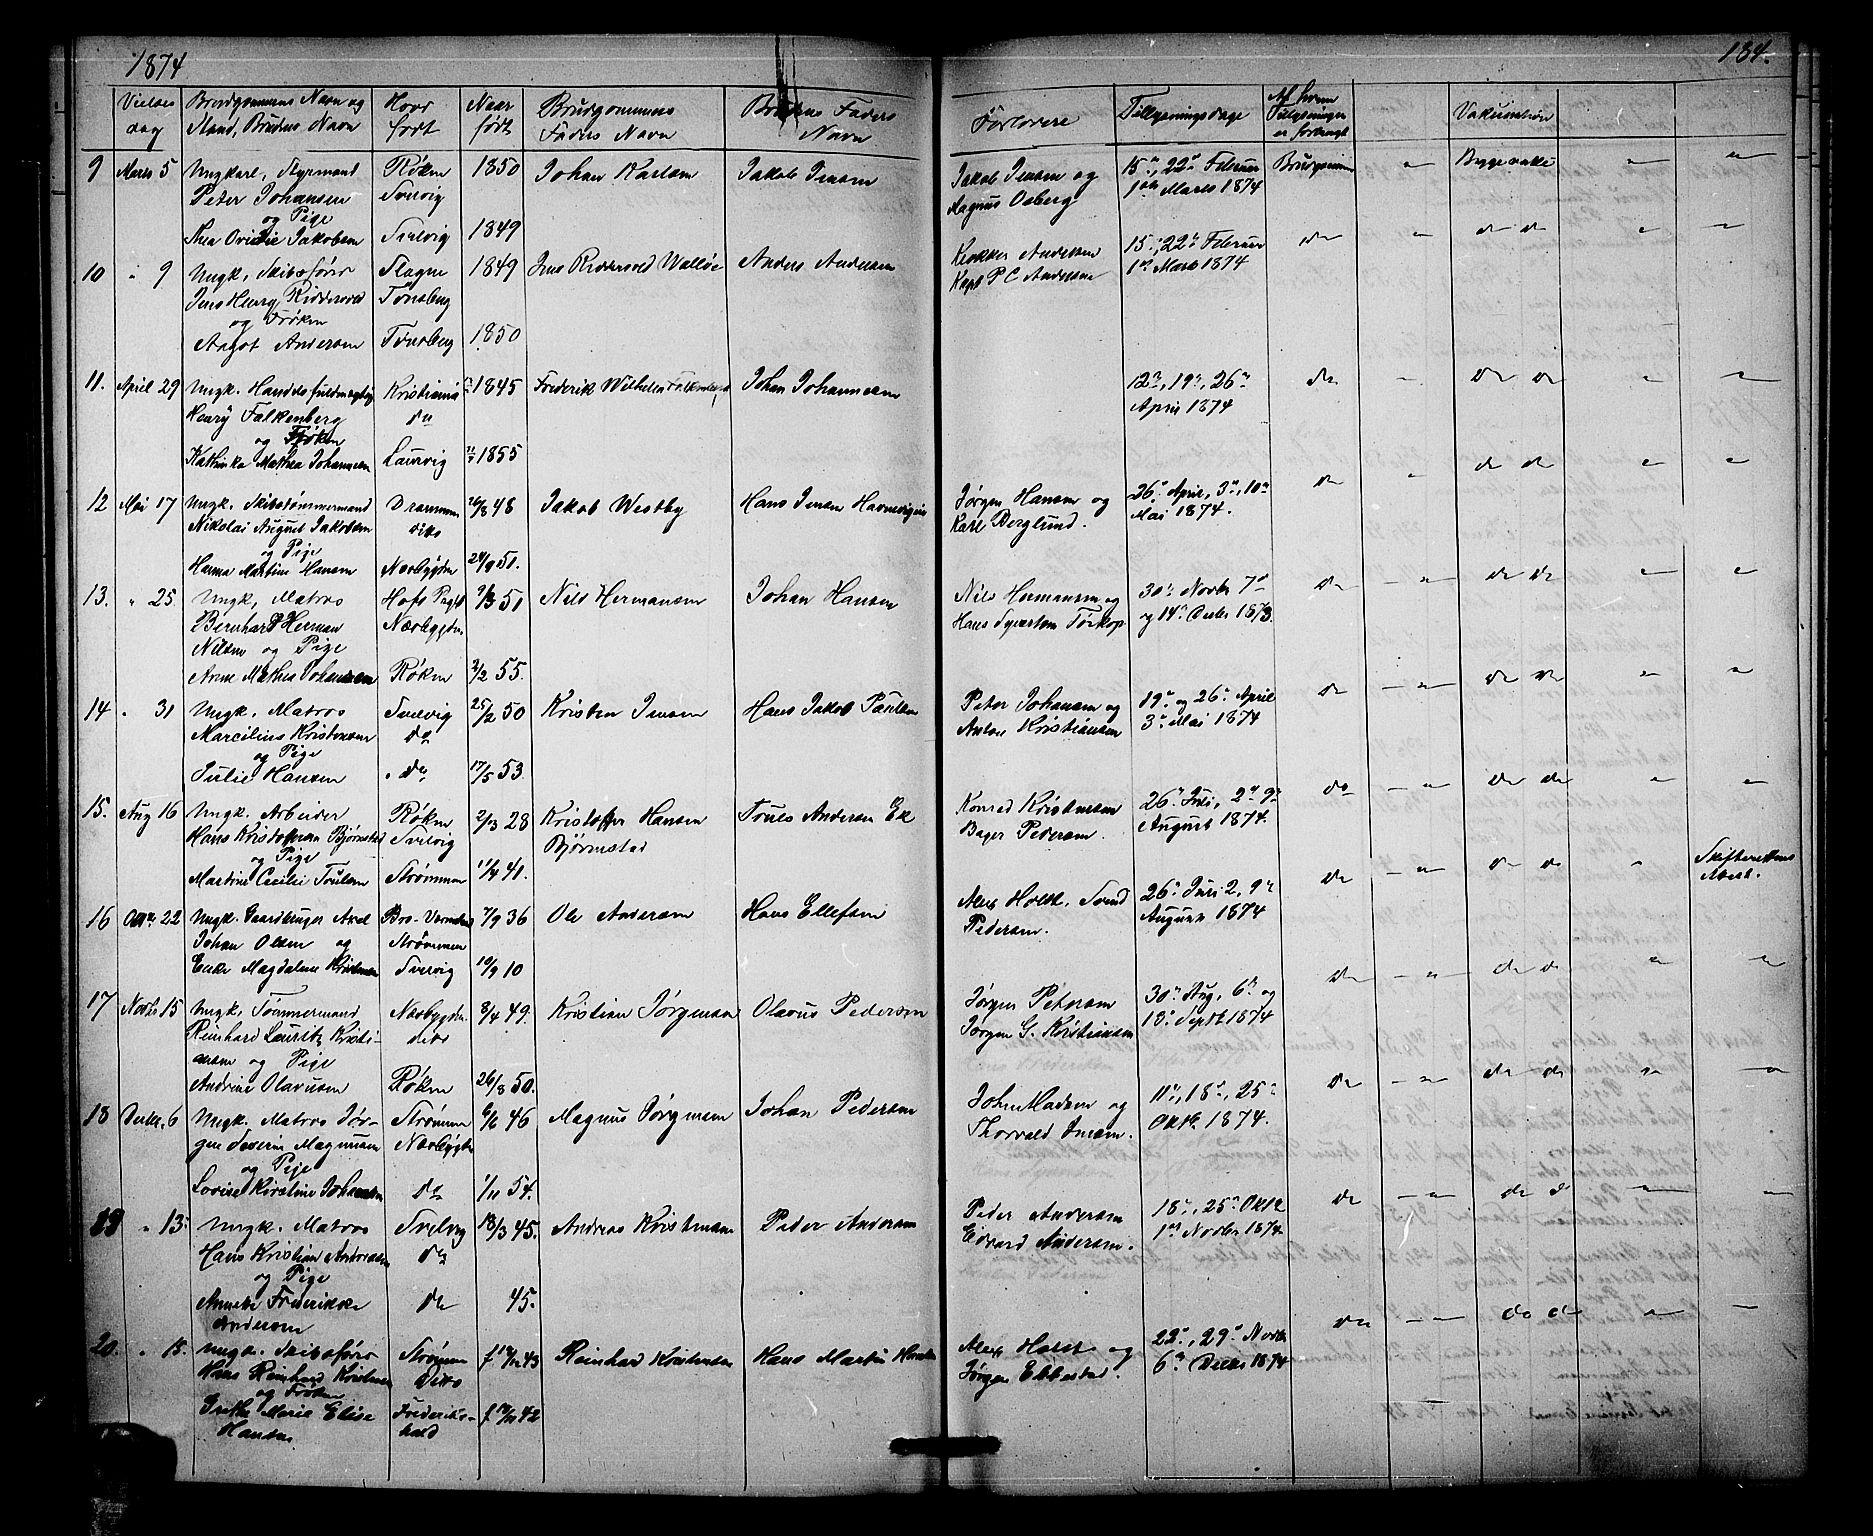 1874
184.
Vielses dag | Brudgommens Navn og Stand, Brudens Navn | Hvor født | Naar født | Brudgommens Faders Navn | Brudens Faders Navn | Forlovere | Tillysningsdage | Af hvem Tillysningen er forlangt | Vakcination
9 Marts 5 Ungkarl, Styrmand Røken 1850 Johan Karlsen Jakob Jensen Jakob Jensen og 15de, 22de Februar Brudgommen " Begge vakc. " "
Peter Johansen Svelvig Magnus Oeberg 1ste Marts 1874
og Pige
Thea Ovidie Jakobsen Svelvig 1849
10 " 9 Ungk. Skibsfører Slagne 1849 Jens Reddersold Walløe Anders Andersen Krokker Andersen 15de, 22de Februar do " do do " "
Jens Henry Riddervold Tønsberg Kapt P C Andersen 1ste Marts 1874
og Frøken
Aagot Andersen Tønsberg 1850
11. April 29 Ungk. Handelsfuldmægtig Kristiania 1845 Frederik Wilhelm Falkenberg Johan Johannesen 12te, 19de, 26de do " do do " "
Henry Falkenberg do April 1874
og Frøken
Kathinka Mathea Johannesen Laurvig 1855
12 Mai 17 Ungk. Skibstømmermand Drammen 26/8 48 Jakob Westby Hans Jensen Havnevigen Jørgen Hansen og 26de April, 3de, 10de do " do do " "
Nikolai August Jakobsen ditto Karl Berglund. Mai 1874.
og Pige
Hanna Martine Hansen Nærbygden 24/9 51.
13. " 25. Ungk, Matros Hofs Prgld 7/3 51 Nils Hermansen Johan Hansen Nils Hermansen og 30te Novbr 7de do " " do do " "
Bernhard Herman Nærbygden Hans Syvertsen Torkop og 14de Decbr 1873.
Nilsen og Pige
Anne Mathea Johansen Røken 2/2 55.
14 " 31 Ungk. Matros Svelvig 25/2 50 Kristen Jensen Hans Jakob Paulsen Peter Johansen og 19de og 26de April do " " do do " "
Marcilius Kristensen do Anton Kristiansen 3de Mai 1874
og Pige
Julie Hansen " do 17/5 53.
15. Aug 16 Ungk. Arbeider Røken 2/3 28 Kristoffer Hansen Truls Andersen Ek Konrad Kristensen 26de Juli, 2den 9de do " " do do " "
Hans Kristoffersen Bjørnstad Svelvig Bjørnstad Bager Pedersen. August 1874.
og Pige
Martine Cecilie Trulsen Strømmen 11/4 41.
16 22 Ungk. Gaardbruger Axel 7/9 36 Ole Andersen Hans Ellefsen Alex Holst, Svend 26de Juli 2, 9de do " " do do " Skifterettens Attest.
Johan Olsen og Strømmen Pedersen. August 1874
Magdalene Kristensen Svelvig 10/9 10
17 Novbr 15 Ungk. Tømmermand Nærbygden 8/4 49. Kristian Jørgensen Olavus Pedersen Jørgen Petersen 30te Aug, 6te og do " " do do " "
Reinhard Lauritz Kristi- ditto Jørgen G. Kristiansen 13de Septbr 1874
ansen og Pige
Andrine Olavusen Røken 26/8 50.
18 Decbr. 6 Ungk. Matros Jør- Strømmen 6/6 46 Magnus Jørgensen Johan Pedersen John Madsen og 11te, 18de, 25de do " " do do " "
gen Severin Magnusen Nærbygden Thorvald Jensen. Oktbr. 1874.
og Pige
Lovise Kirstine Johansen do 1/11 54.
19 " 13. Ungk. Matros Svelvig 18/3 45. Andreas Kristensen Peder Andersen Peder Andersen 18de, 25de Oktbr do " " do do " "
Hans Kristian Andreasen do Edvard Andersen. 1ste Novbr 1874.
og Pige
Annette Frederikke do 45.
Andersen
20. " 18. Ungk. Skibsfører Strømmen Reinhard Kristensen Hans Martin Hansen Alex Holst og 22de, 29de Novbr do " " do do " "
Hans Reinhard Kristensen Ditto Jørgen Ebbestad. 6te Decbr 1874
og Frøken
Grethe Marie Elise Frederiks-
Hansen hald